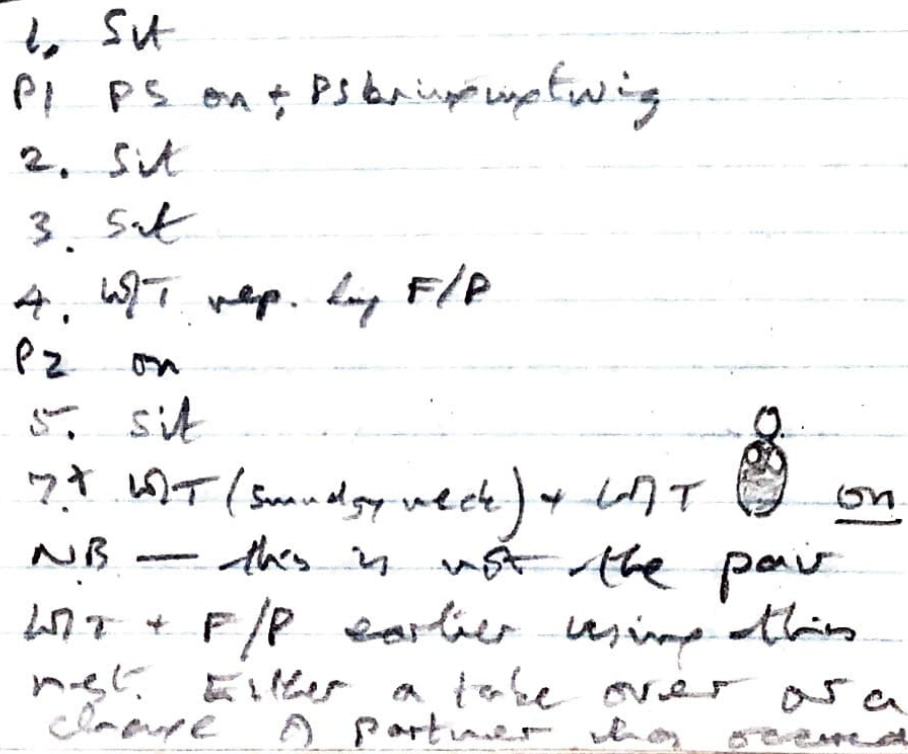 1. Sit
P1 PS on + PS bringing twig
2. Sit
3. Sit
4. WT rep. by F/P
P2 on
5. sit
7.* WT (smudgy neck) + WT on
NB — this is not the pair
WT + F/P earlier using this
nest. Either a take over or a
change of partner has occurred